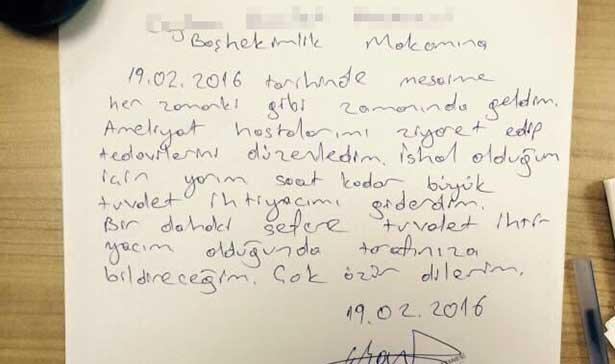 Başhekimlik Makamına
19.02.2016 tarihinde mesaime
her zamanki gibi zamanında geldim.
Ameliyat hastalarımı ziyaret edip
tedavilerini düzenledim. İshal olduğum
için yarım saat kadar büyük
tuvalet ihtiyacımı giderdim.
Bir dahaki sefere tuvalet ihti-
yacım olduğunda tarafınıza
bildireceğim. Çok özür dilerim.
19.02.2016